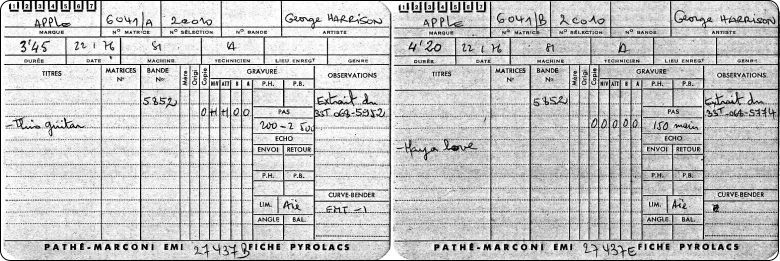 1 2 3 4 5 6 7
APPLE 6041/A 2C010 George HARRISON
MARQUE N° MATRICE N° SÉLECTION N° BANDE ARTISTE
3'45 22/1/76 A
DURÉE DATE MACHINE TECHNICIEN LIEU ENREGt GENRE
TITRES MATRICES N° BANDE N° Mère Origi. Copie GRAVURE OBSERVATIONS
NIV ATT R A P.H. P.B.
5852 Extrait du
0 H H 0 0 PAS 35T-068-5952
-This guitar 200-2 500
ECHO
ENVOI RETOUR
P.H. P.B.
CURVE-BENDER
LIM. Aïe EMT-1
ANGLE BAL.
PATHÉ-MARCONI EMI 27437B FICHE PYROLACS
1 2 3 4 5 6 7
APPLE 6041/B 2C010 George HARRISON
MARQUE N° MATRICE N° SÉLECTION N° BANDE ARTISTE
4'20 22/1/76 A
DURÉE DATE MACHINE TECHNICIEN LIEU ENREGt GENRE
TITRES MATRICES N° BANDE N° Mère Origi. Copie GRAVURE OBSERVATIONS
NIV ATT R A P.H. P.B.
5852 Extrait du
0 0 0 0 0 PAS 35T-068-5774
150 main
ECHO
-Maya love ENVOI RETOUR
P.H. P.B.
CURVE-BENDER
LIM. Aïe
ANGLE BAL.
PATHÉ-MARCONI EMI 27437E FICHE PYROLACS